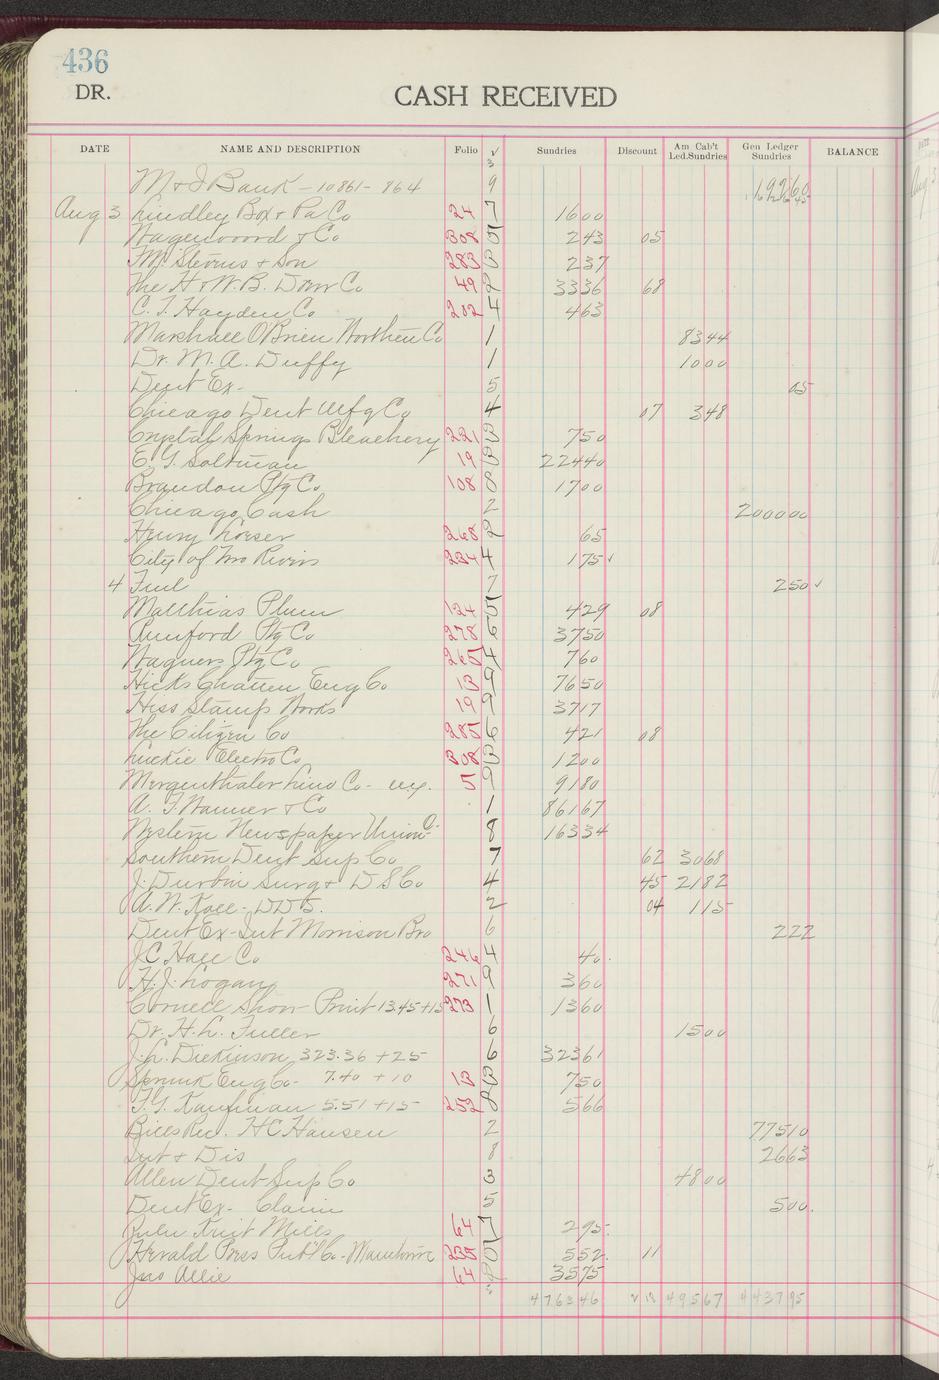 436
DR.
CASH RECEIVED
DATE NAME AND DESCRIPTION Folio √ Sundries Discount Am Cab't Led.Sundries Gen Ledger Sundries BALANCE
M & J Bank - 10861 - 864 9
Aug 3 Lindley Box & Pa Co 24 7 1600
& Co 308 5 243 05
F.M. Stevens & Son 283 3 237
The H & W.B. Drew Co 49 2 3336 68
C. I. Hayden Co 202 4 463
Marshall O'Brien Northen Co 1 8344
Dr. M. A. Duffy 1 1000
Dent Ex - 5 05
Chicago Dent Mfg Co 4 07 348
Crystal Springs Bleachery 221 3 750
E. G. Soltman 19 3 22440
Brandon Ptg Co 108 8 1700
Chicago Cash 2 200000
Henry Loeser 268 2 65
City of Two Rivers 224 4 175 √
4 Fuel 7 250 √
Matthias Plum 124 5 429 08
Rumford Ptg Co 278 6 3750
Wagners Ptg Co 265 4 760
Hicks Chatten Eng Co 13 9 7650
Hiss Stamp Works 19 9 3717
The Citizen Co 285 6 421 08
Luckie Electro Co 308 3 1200
Mergenthaler Lino Co - 5 9 9180
A. F. Wanner & Co 1 86167
Western Newspaper Union 8 16334
Southern Dent Sup Co 7 62 3068
J. Durbin Surg & D S Co 4 45 2182
A. W. Kall - D D S. 2 04 115
Dent Ex - Int Morrison Bro 6 222
J C Hall Co 246 4 40
H. J. Logan 271 9 360
Cornell Show Print 13.45 + 15 273 1 1360
Dr. H. L. Fuller 6 1500
J. L. Dickinson 323.36 + 25 6 32361
Sprunk Eng Co - 7.40 + 10 13 3 750
F. G. Kaufman 5.51 + 15 252 8 566
Bills Rec. H C Hansen 2 77510
Int & Dis 8 2663
Allen Dent Sup Co 3 4800
Dent Ex - Claim 5 500
Knit Mills 64 7 295
Herald Press Pub'l Co - 235 0 552 11
Jno Allie 64 8 3575
476346 49567 443795